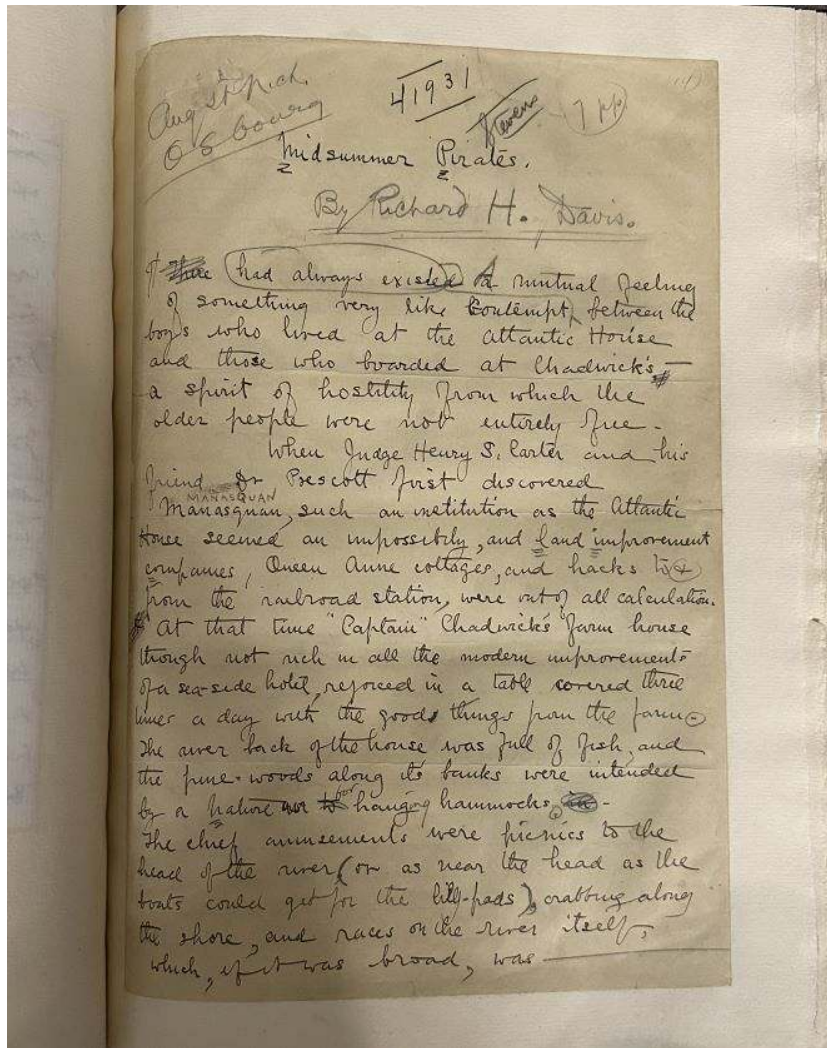 (1)
41931
August N.ch.
O S bourg
Stevens
7 pp
Midsummer Pirates.
By Richard H. Davis.
¶ had always existed A mutual feeling
of something very like Contempt, between the
boys who lived at the Atlantic House
and those who boarded at Chadwick's —
a spirit of hostility from which the
older people were not entirely free -
When Judge Henry S. Carter and his
friend Dr Prescott first discovered
MANASQUAN
Manasquan, such an institution as the Atlantic
House seemed an impossibily, and land improvement
companies, Queen Anne cottages, and hacks to &
from the railroad station, were out of all calculation.
At that time "Captain" Chadwick's farm house
though not rich in all the modern improvements
of a sea-side hotel, rejoiced in a table covered three
times a day with the goods things from the farm -
The river back of the house was full of fish, and
the pine-woods along its banks were intended
by Nature for hanging hammocks -
The chief amusements were picnics to the
head of the river (or as near the head as the
boats could get for the lily-pads), crabbing along
the shore, and races on the river itself,
which, if it was broad, was